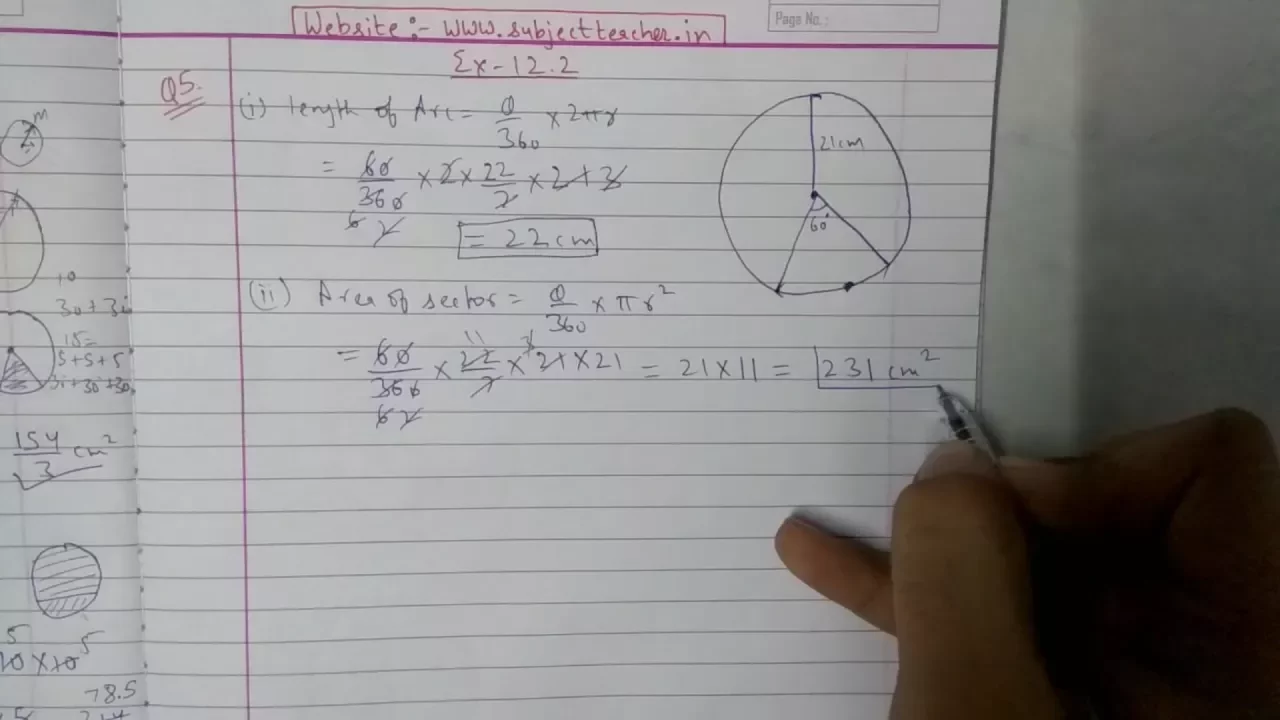 Page No.:
Website :- www.subjectteacher.in
Ex-12.2
Q5.
(i) length of Arc = θ/360 × 2πr
= 60/360 × 2 × 22/7 × 21
6 2
= 22 cm
21cm
60°
(ii) Area of sector = θ/360 × πr²
= 60/360 × 22/7 × 21 × 21 = 21 × 11 = 231 cm²
11 3
6 2
m
10
30+3
15=
5+5+5
154/3 cm²
5
10 × 10 5
78.5